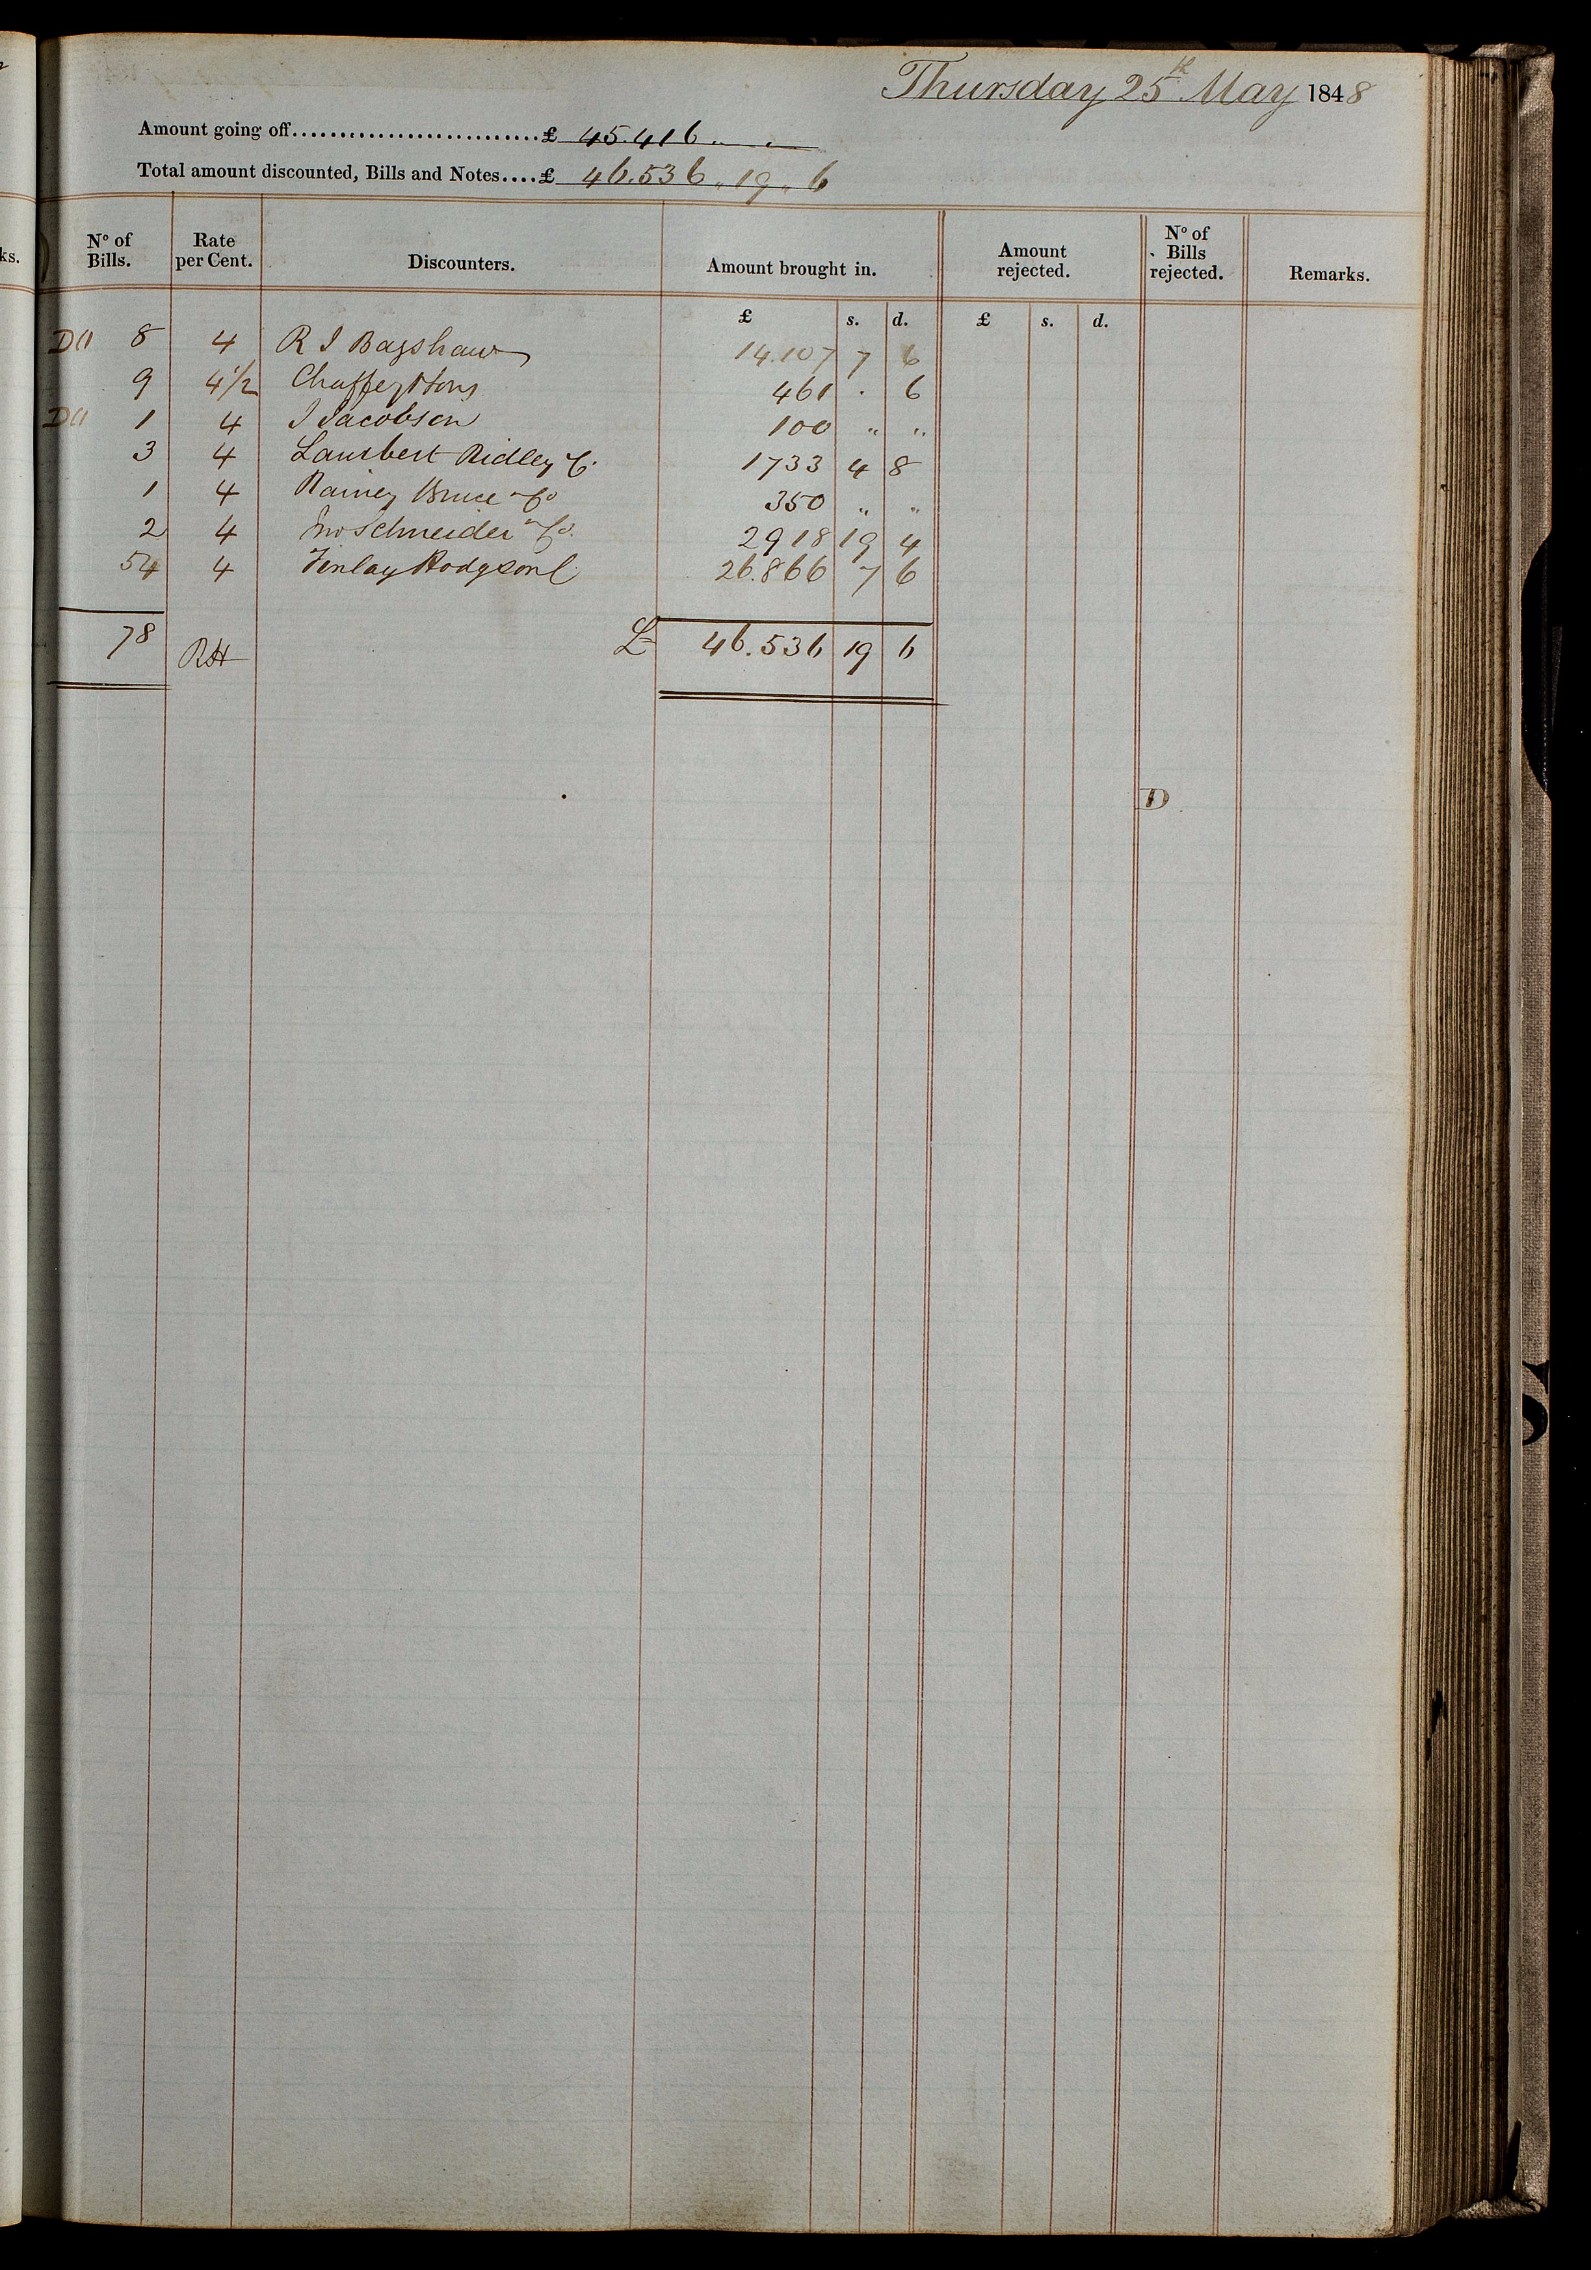 Thursday 25th May 1848
Amount going off..........................£ 45.416 „ „
Total amount discounted, Bills and Notes....£ 46.536 „ 19 „ 6
ks.
No of Bills. Rate per Cent. Discounters. Amount brought in. Amount rejected. No of Bills rejected. Remarks.
£ s. d. £ s. d.
8 4 R I Bagshaw 14.107 7 6
9 4 1/2 Chaffey & Sons 461 . 6
1 4 I Jacobson 100 „ „
3 4 Lambert Ridley & C. 1733 4 8
1 4 Rainey Bruce & Co 350 „ „
2 4 Jno Schneider & Co. 2918 19 4
54 4 Finlay Hodgson C 26.866 7 6
78 RH £ 46.536 19 6
D